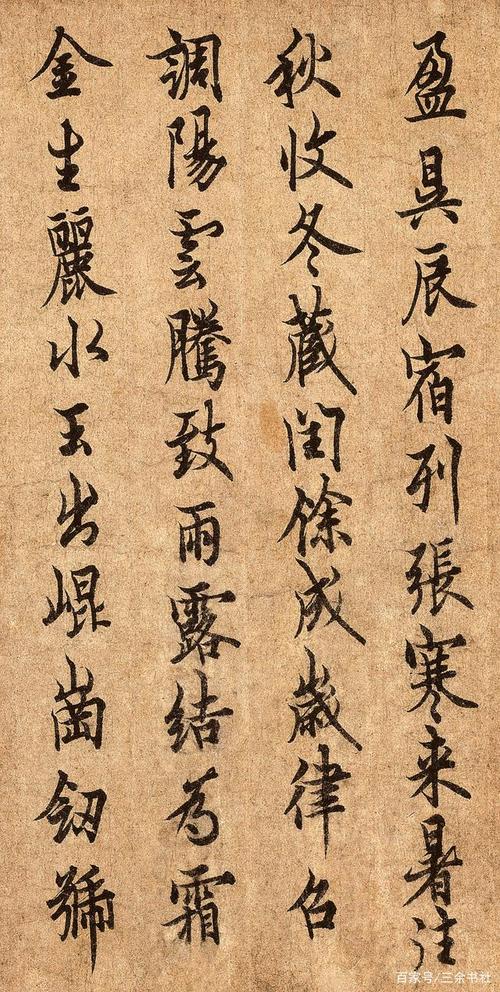 盈昃辰宿列張寒来暑往
秋收冬藏閏餘成歲律召
調陽雲騰致雨露結為霜
金生麗水玉出崐崗釼號
百家号/三余书社